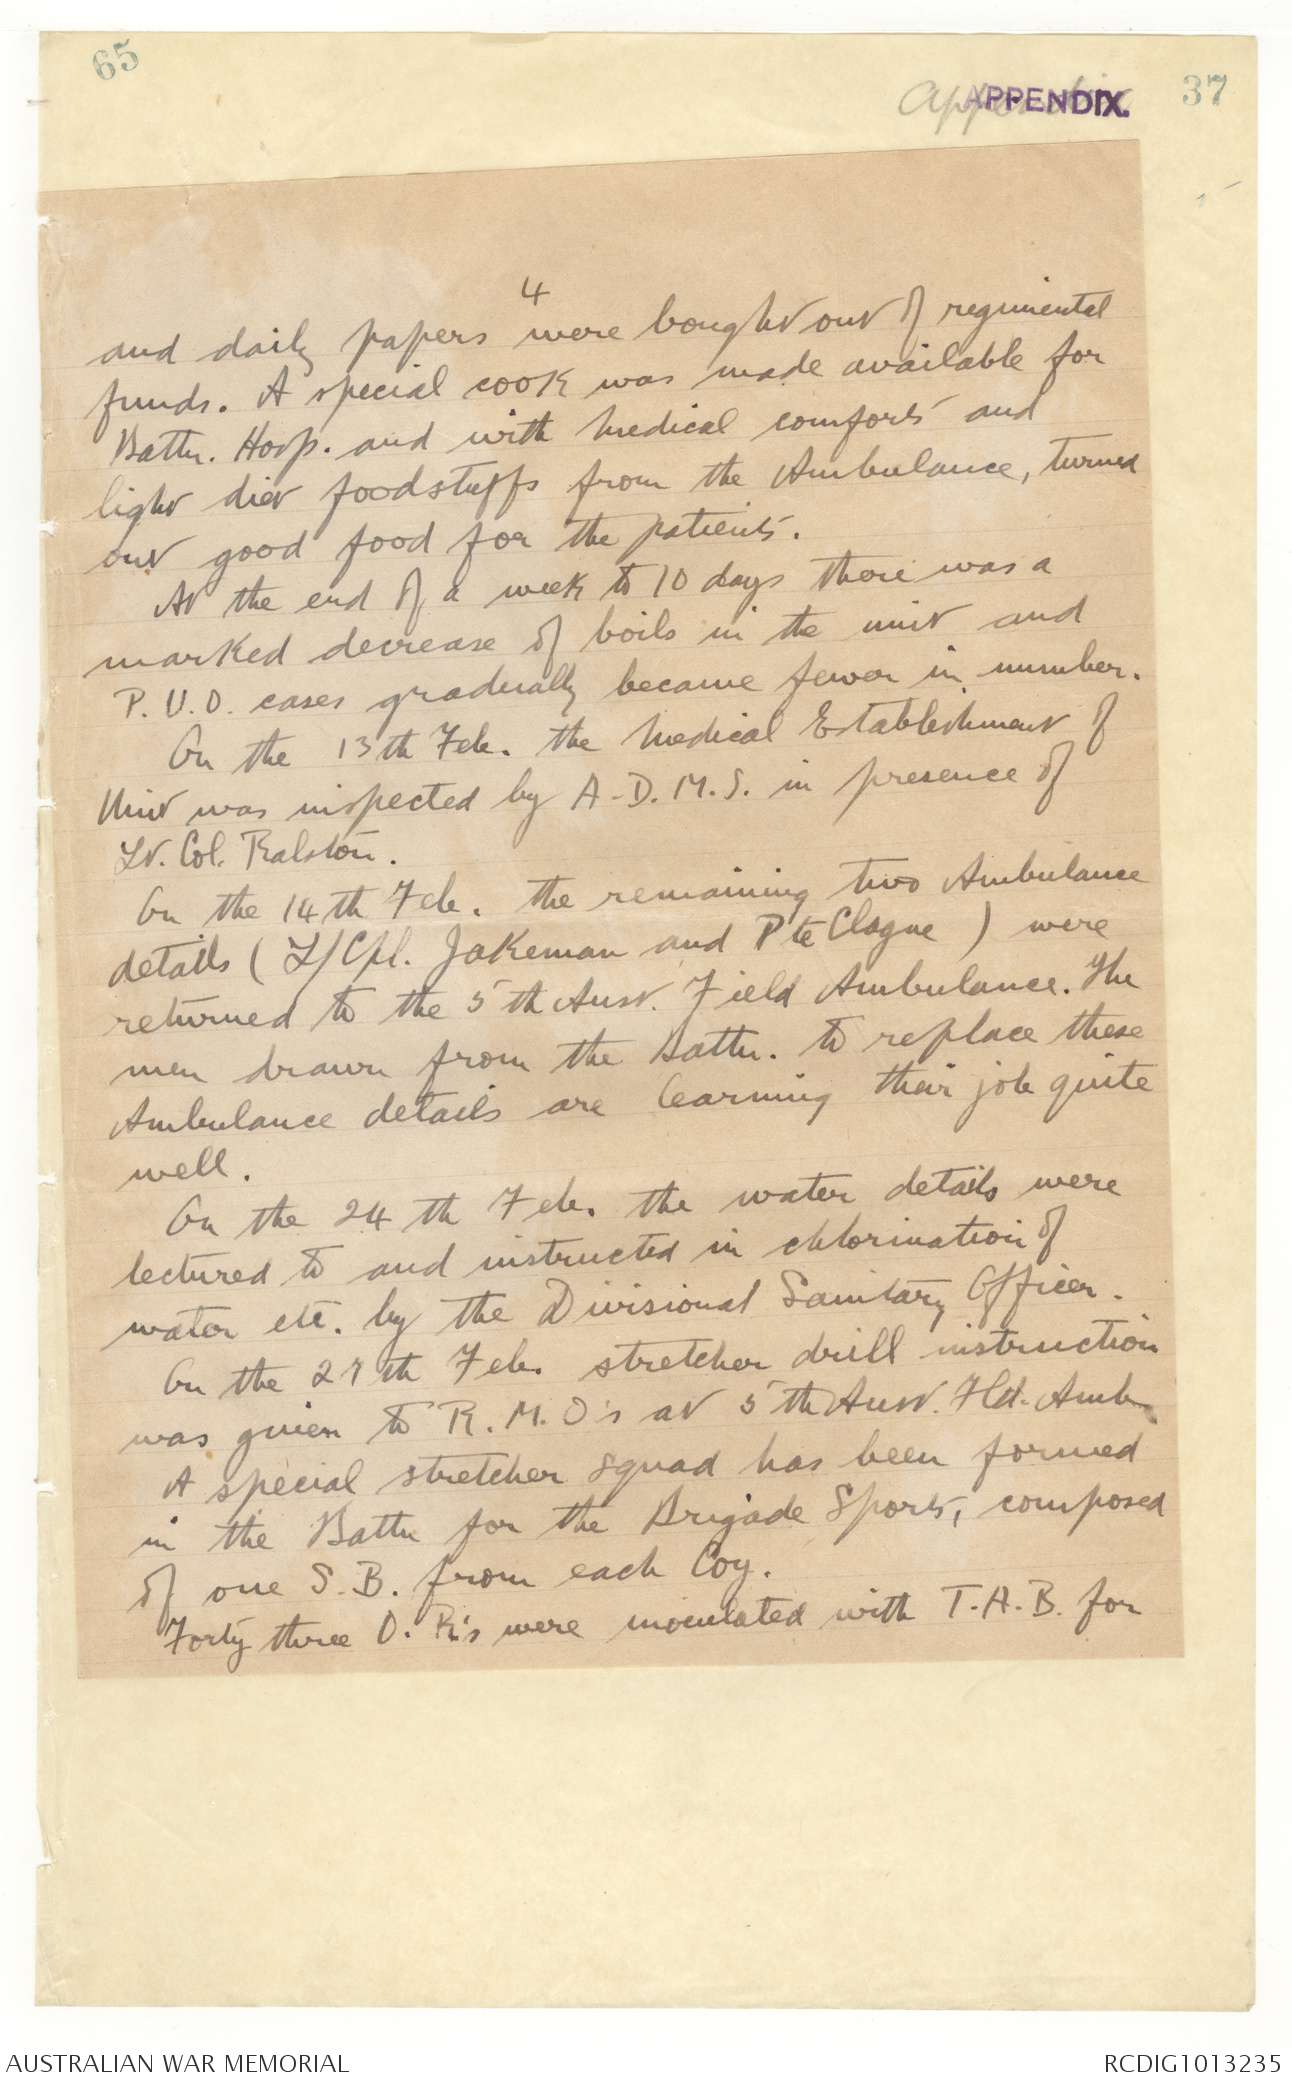 65
Appendix APPENDIX. 37
4
and daily papers were bought out of regimental
funds. A special cook was made available for
Battn. Hosp. and with medical comforts and
light diet foodstuffs from the Ambulance, turned
out good food for the patients.
At the end of a week to 10 days there was a
marked decrease of boils in the unit and
P.U.O. cases gradually became fewer in number.
On the 13th Feb. the Medical Establishment of
Unit was inspected by A.D.M.S. in presence of
Lt. Col. Ralston.
On the 14th Feb. the remaining two Ambulance
details (L/Cpl. Jakeman and Pte Clogue) were
returned to the 5th Aust. Field Ambulance. The
men drawn from the Battn. to replace these
Ambulance details are learning their job quite
well.
On the 24th Feb. the water details were
lectured to and instructed in chlorination of
water etc. by the Divisional Sanitary Officer.
On the 27th Feb. stretcher drill instruction
was given to R.M.O's at 5th Aust. Fld. Amb.
A special stretcher squad has been formed
in the Battn for the Brigade Sports, composed
of one S.B. from each Coy.
Forty three O.R's were inoculated with T.A.B. for
AUSTRALIAN WAR MEMORIAL RCDIG1013235